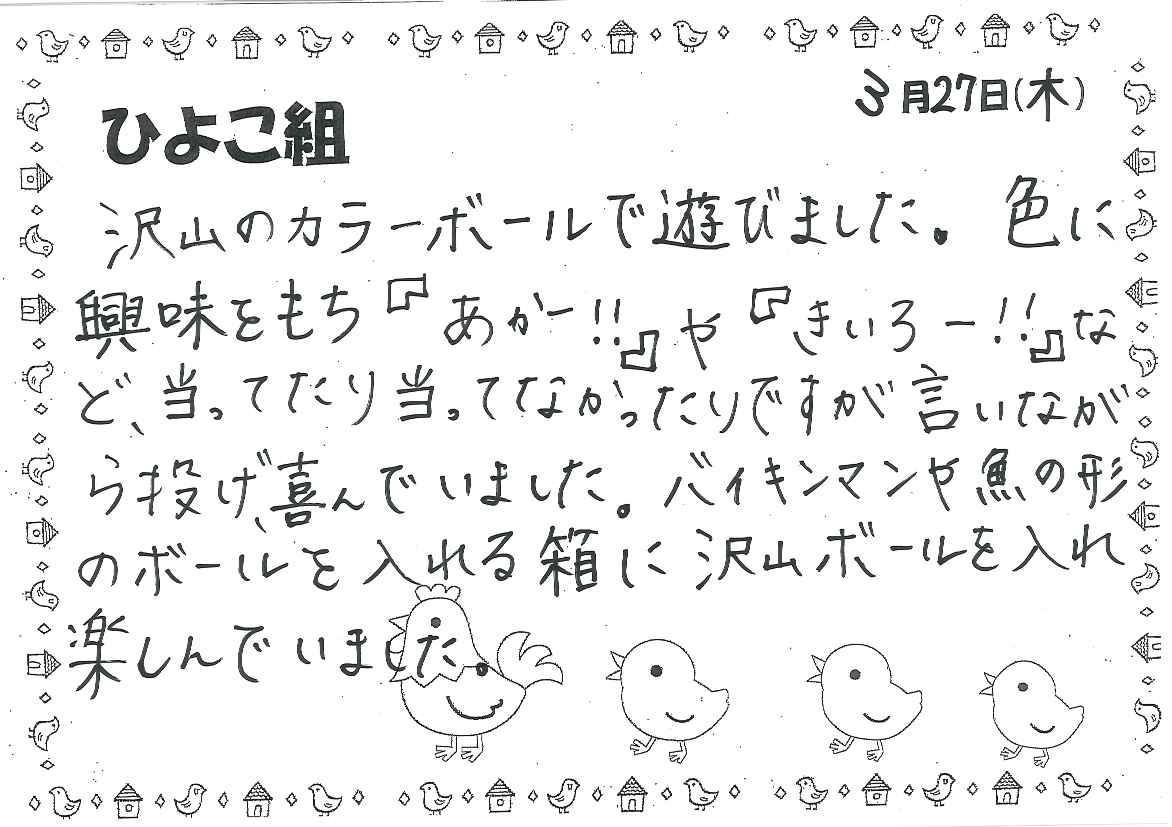 3月27日(木)
ひよこ組
沢山のカラーボールで遊びました。色に
興味をもち『あかー!!』や『きいろー!!』な
ど、当ってたり当ってなかったりですが言いなが
ら投げ、喜んでいました。バイキンマンや魚の形
のボールを入れる箱に沢山ボールを入れ
楽しんでいました。